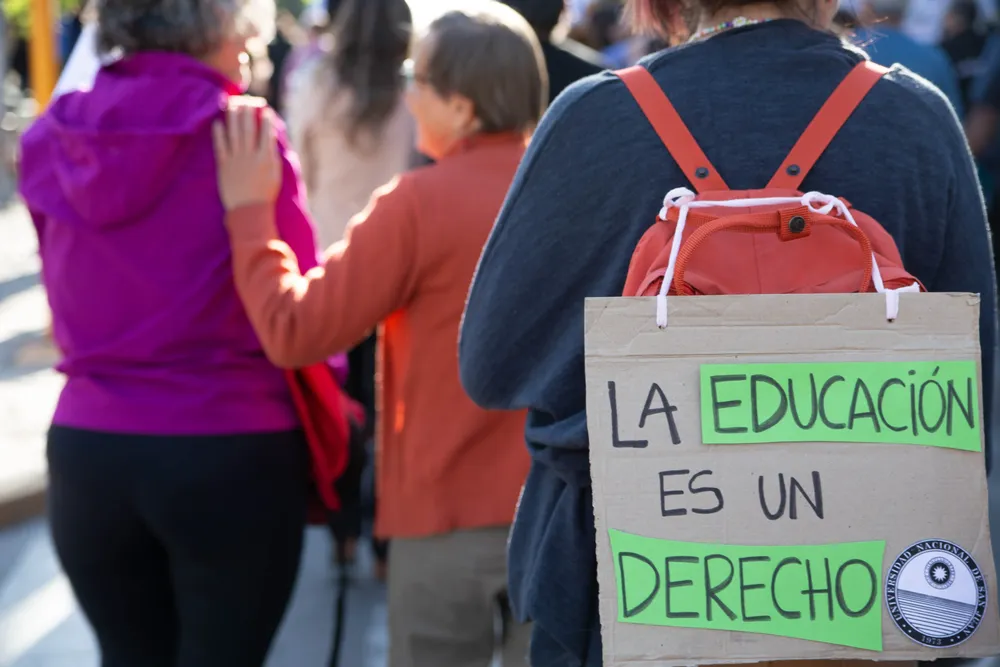 LA EDUCACIÓN
ES UN
DERECHO
UNIVERSIDAD NACIONAL DE SAN JUAN
1973